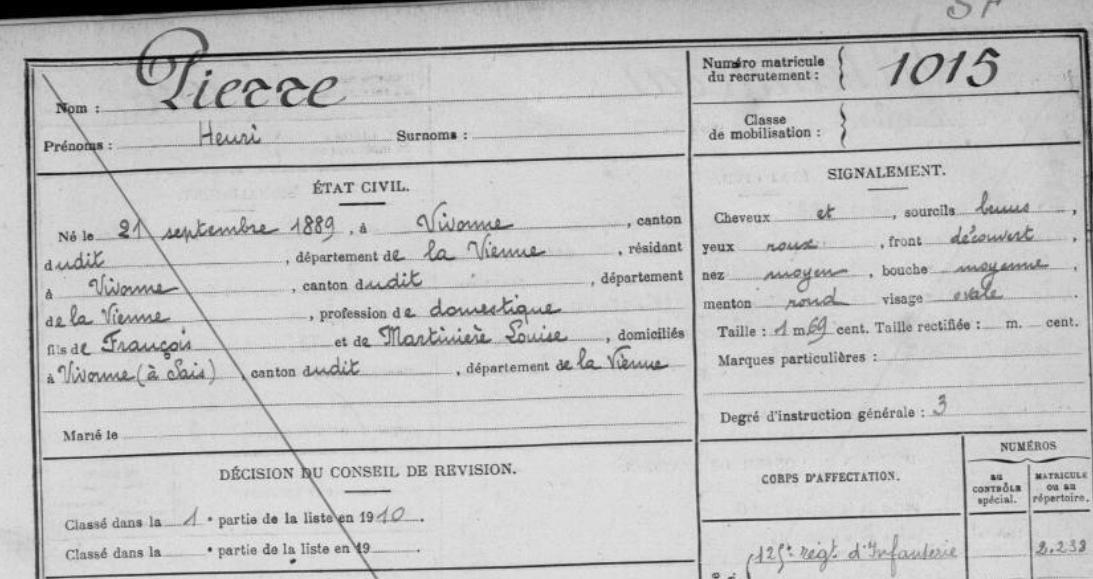 SF
Nom : Pierre
Prénoms : Henri Surnoms :
Numéro matricule du recrutement : 1015
Classe de mobilisation :
ÉTAT CIVIL.
Né le 21 septembre 1889, à Vivonne, canton
dudit, département de la Vienne, résidant
à Vivonne, canton dudit, département
de la Vienne, profession de domestique
fils de François et de Martinière Louise, domiciliés
à Vivonne (à Sais), canton dudit, département de la Vienne
Marié le
SIGNALEMENT.
Cheveux et, sourcils bruns,
yeux roux, front découvert,
nez moyen, bouche moyenne,
menton rond visage ovale.
Taille : 1 m. 69 cent. Taille rectifiée : m. cent.
Marques particulières :
Degré d'instruction générale : 3
DÉCISION DU CONSEIL DE REVISION.
Classé dans la 1e partie de la liste en 1910.
Classé dans la e partie de la liste en 19.
CORPS D'AFFECTATION.
NUMÉROS
au CONTRÔLE spécial.
MATRICULE ou au répertoire.
125e régt d'Infanterie 2.232